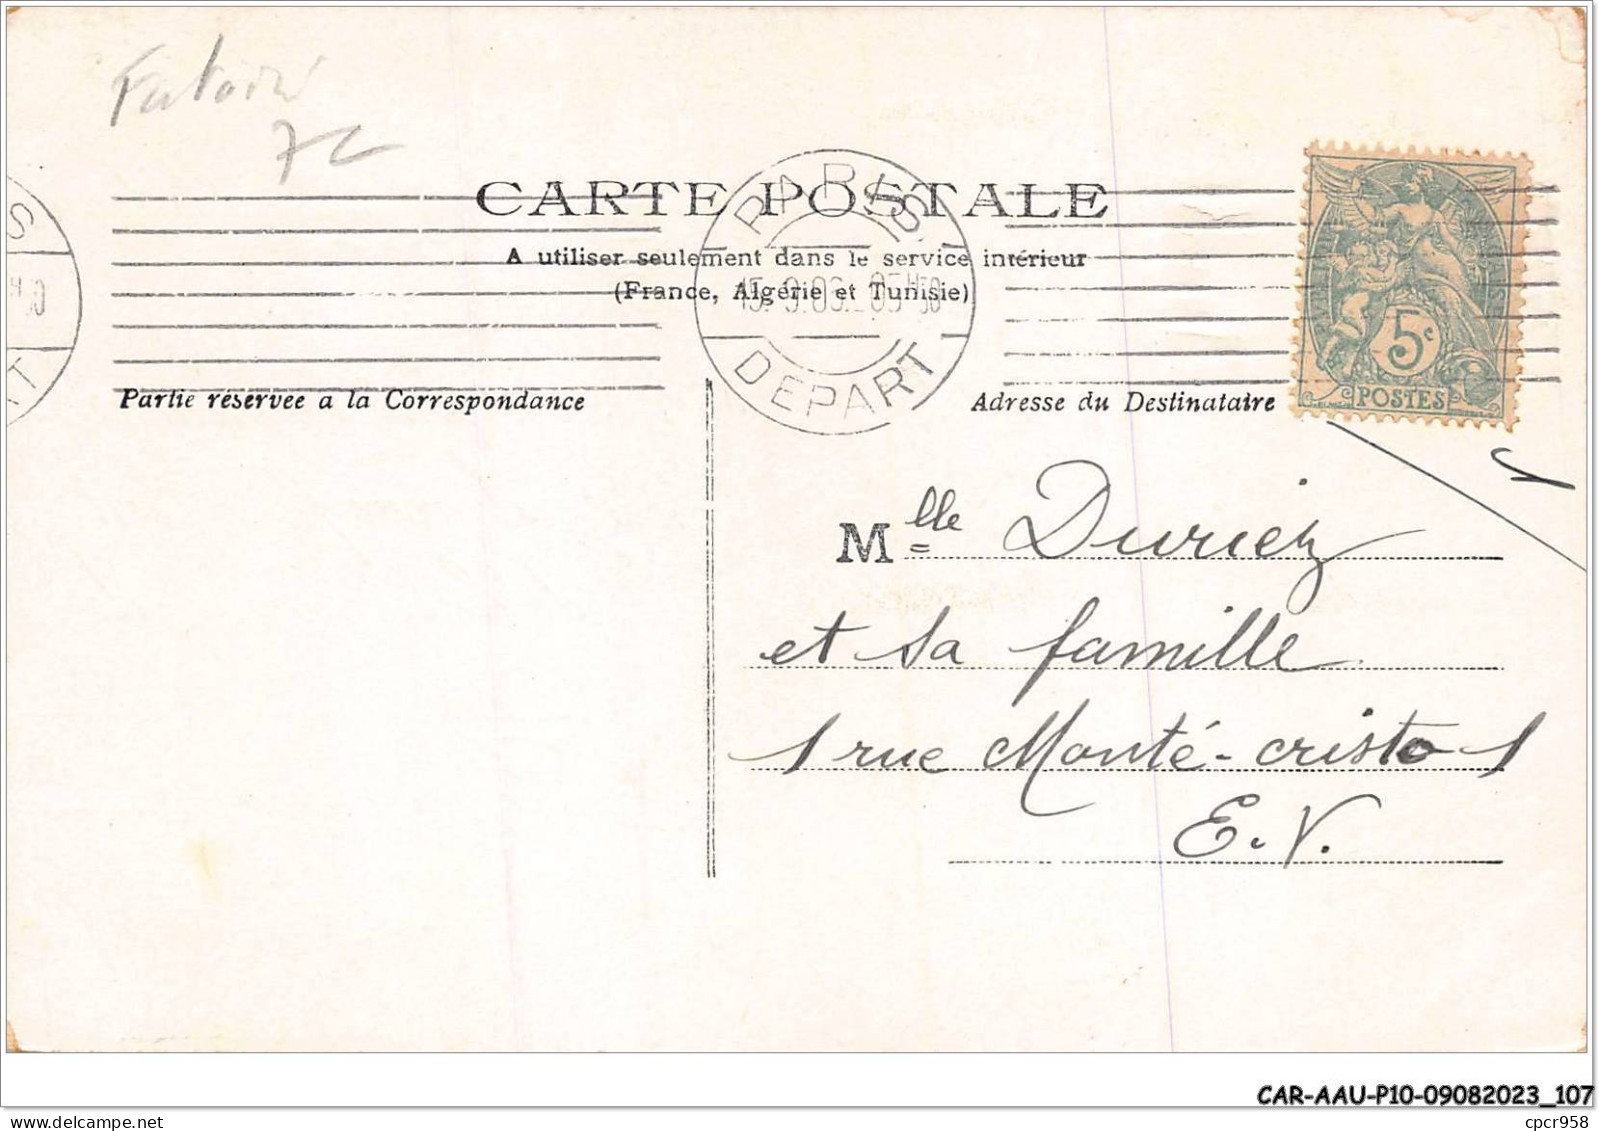 7c
CARTE POSTALE
A utiliser seulement dans le service intérieur
(France, Algérie et Tunisie)
PARIS
DEPART
5c
POSTES
Partie réservée à la Correspondance
Adresse du Destinataire
Mlle Duriez
et sa famille
1 rue Monté-cristo 1
E.V.
CAR-AAU-P10-09082023_107
cpcr958